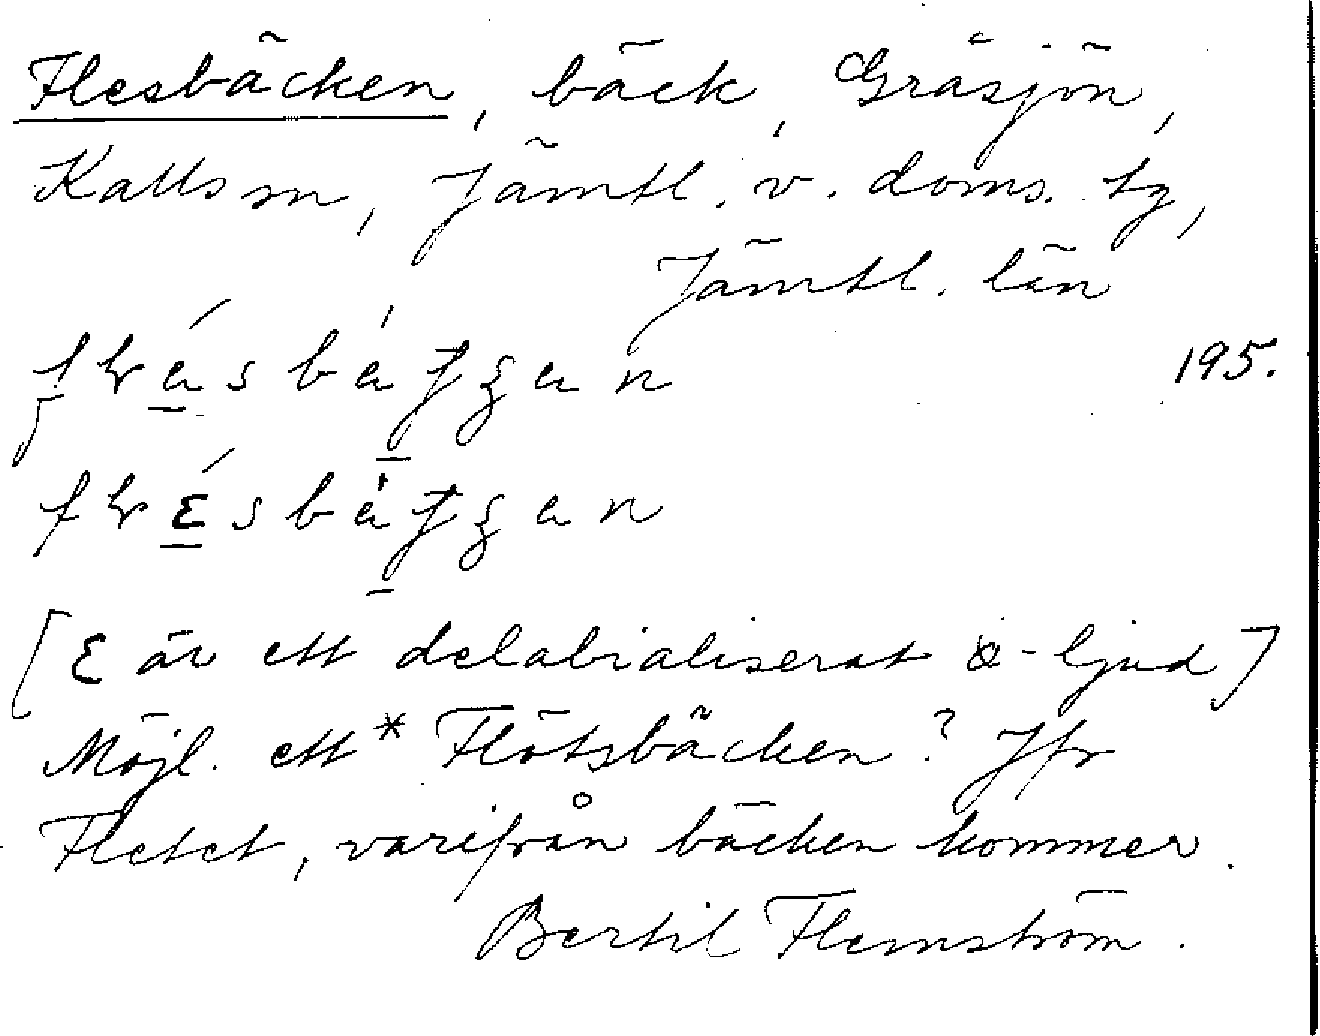 Flesbäcken, bäck, Gräsjön,
Kalls sn, Jämtl. v. doms. tg,
Jämtl. län
195.
[ɛ är ett delabialiserat ö-ljud]
Möjl. ett *Flötsbäcken? Jfr
Fletet, varifrån bäcken kommer.
Bertil Flemström.